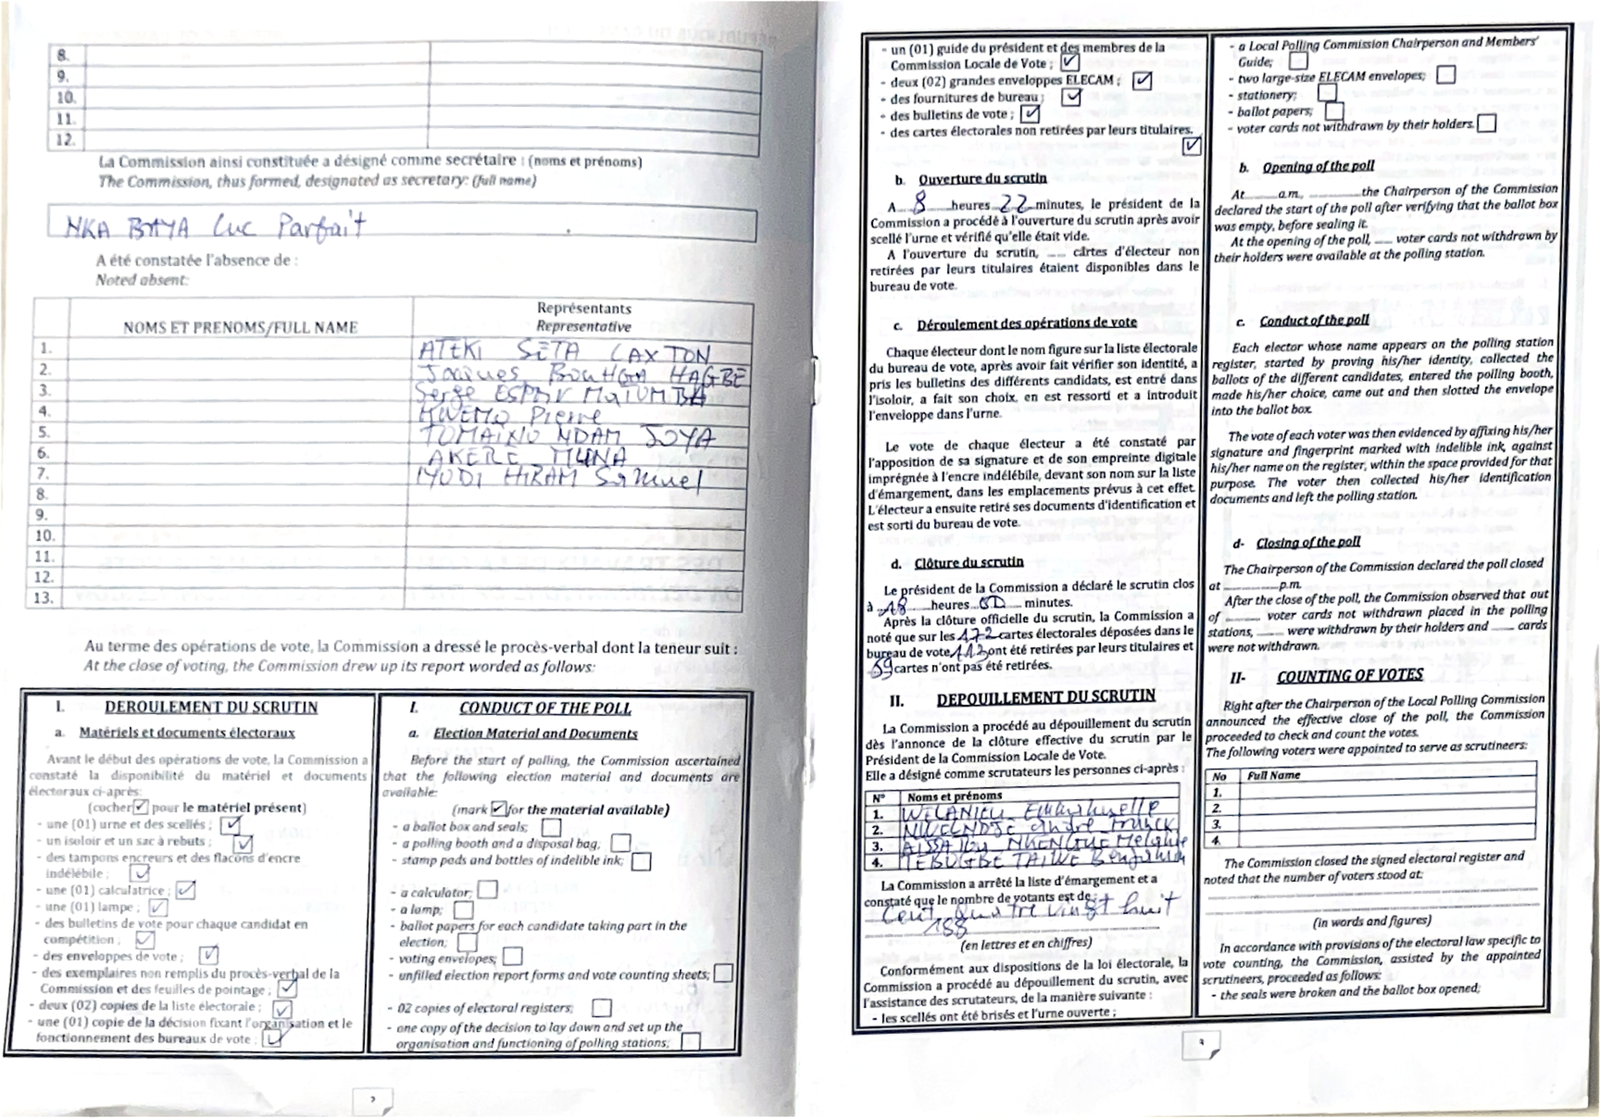 8.
9.
10.
11.
12.
La Commission ainsi constituée a désigné comme secrétaire : (noms et prénoms)
The Commission, thus formed, designated as secretary: (full name)
NKA BAYA Luc Parfait
A été constatée l'absence de :
Noted absent:
Représentants
NOMS ET PRENOMS/FULL NAME
Representative
1. ATEKI SETA CAXTON
2. Jacques BOUHGA HAGBE
3. Serge ESPOIR MATUMBA
4. KWEMO Pierre
5. TOMAINO NDAM JOYA
6. AKERE MUNA
7. IYODI HIRAM Samuel
8.
9.
10.
11.
12.
13.
Au terme des opérations de vote, la Commission a dressé le procès-verbal dont la teneur suit :
At the close of voting, the Commission drew up its report worded as follows:
I. DEROULEMENT DU SCRUTIN
a. Matériels et documents électoraux
Avant le début des opérations de vote, la Commission a
constaté la disponibilité du matériel et documents
électoraux ci-après:
(cocher ☑ pour le matériel présent)
- une (01) urne et des scellés ; ☑
- un isoloir et un sac à rebuts ; ☑
- des tampons encreurs et des flacons d'encre
indélébile ; ☑
- une (01) calculatrice ; ☑
- une (01) lampe ; ☑
- des bulletins de vote pour chaque candidat en
compétition ; ☑
- des enveloppes de vote ; ☑
- des exemplaires non remplis du procès-verbal de la
Commission et des feuilles de pointage ; ☑
- deux (02) copies de la liste électorale ; ☑
- une (01) copie de la décision fixant l'organisation et le
fonctionnement des bureaux de vote ; ☑
I. CONDUCT OF THE POLL
a. Election Material and Documents
Before the start of polling, the Commission ascertained
that the following election material and documents are
available:
(mark ☑ for the material available)
- a ballot box and seals; ☐
- a polling booth and a disposal bag, ☐
- stamp pads and bottles of indelible ink; ☐
- a calculator; ☐
- a lamp; ☐
- ballot papers for each candidate taking part in the
election; ☐
- voting envelopes; ☐
- unfilled election report forms and vote counting sheets; ☐
- 02 copies of electoral registers; ☐
- one copy of the decision to lay down and set up the
organisation and functioning of polling stations; ☐
- un (01) guide du président et des membres de la
Commission Locale de Vote ; ☑
- deux (02) grandes enveloppes ELECAM ; ☑
- des fournitures de bureau ; ☑
- des bulletins de vote ; ☑
- des cartes électorales non retirées par leurs titulaires. ☑
b. Ouverture du scrutin
A 8 heures 22 minutes, le président de la
Commission a procédé à l'ouverture du scrutin après avoir
scellé l'urne et vérifié qu'elle était vide.
A l'ouverture du scrutin, ..... cartes d'électeur non
retirées par leurs titulaires étaient disponibles dans le
bureau de vote.
c. Déroulement des opérations de vote
Chaque électeur dont le nom figure sur la liste électorale
du bureau de vote, après avoir fait vérifier son identité, a
pris les bulletins des différents candidats, est entré dans
l'isoloir, a fait son choix, en est ressorti et a introduit
l'enveloppe dans l'urne.
Le vote de chaque électeur a été constaté par
l'apposition de sa signature et de son empreinte digitale
imprégnée à l'encre indélébile, devant son nom sur la liste
d'émargement, dans les emplacements prévus à cet effet.
L'électeur a ensuite retiré ses documents d'identification et
est sorti du bureau de vote.
d. Clôture du scrutin
Le président de la Commission a déclaré le scrutin clos
à 18 heures 00 minutes.
Après la clôture officielle du scrutin, la Commission a
noté que sur les 172 cartes électorales déposées dans le
bureau de vote 113 ont été retirées par leurs titulaires et
59 cartes n'ont pas été retirées.
II. DEPOUILLEMENT DU SCRUTIN
La Commission a procédé au dépouillement du scrutin
dès l'annonce de la clôture effective du scrutin par le
Président de la Commission Locale de Vote.
Elle a désigné comme scrutateurs les personnes ci-après :
N° Noms et prénoms
1. Emmanuelle
2. André Franck
3. AISSATOU
4. TAIWE Benjamin
La Commission a arrêté la liste d'émargement et a
constaté que le nombre de votants est de :
Cent quatre vingt huit
188
(en lettres et en chiffres)
Conformément aux dispositions de la loi électorale, la
Commission a procédé au dépouillement du scrutin, avec
l'assistance des scrutateurs, de la manière suivante :
- les scellés ont été brisés et l'urne ouverte ;
- a Local Polling Commission Chairperson and Members'
Guide; ☐
- two large-size ELECAM envelopes; ☐
- stationery; ☐
- ballot papers; ☐
- voter cards not withdrawn by their holders. ☐
b. Opening of the poll
At ..... a.m, ..... the Chairperson of the Commission
declared the start of the poll after verifying that the ballot box
was empty, before sealing it.
At the opening of the poll, ..... voter cards not withdrawn by
their holders were available at the polling station.
c. Conduct of the poll
Each elector whose name appears on the polling station
register, started by proving his/her identity, collected the
ballots of the different candidates, entered the polling booth,
made his/her choice, came out and then slotted the envelope
into the ballot box.
The vote of each voter was then evidenced by affixing his/her
signature and fingerprint marked with indelible ink, against
his/her name on the register, within the space provided for that
purpose. The voter then collected his/her identification
documents and left the polling station.
d- Closing of the poll
The Chairperson of the Commission declared the poll closed
at ..... p.m.
After the close of the poll, the Commission observed that out
of ..... voter cards not withdrawn placed in the polling
stations, ..... were withdrawn by their holders and ..... cards
were not withdrawn.
II- COUNTING OF VOTES
Right after the Chairperson of the Local Polling Commission
announced the effective close of the poll, the Commission
proceeded to check and count the votes.
The following voters were appointed to serve as scrutineers:
No Full Name
1.
2.
3.
4.
The Commission closed the signed electoral register and
noted that the number of voters stood at:
(in words and figures)
In accordance with provisions of the electoral law specific to
vote counting, the Commission, assisted by the appointed
scrutineers, proceeded as follows:
- the seals were broken and the ballot box opened;